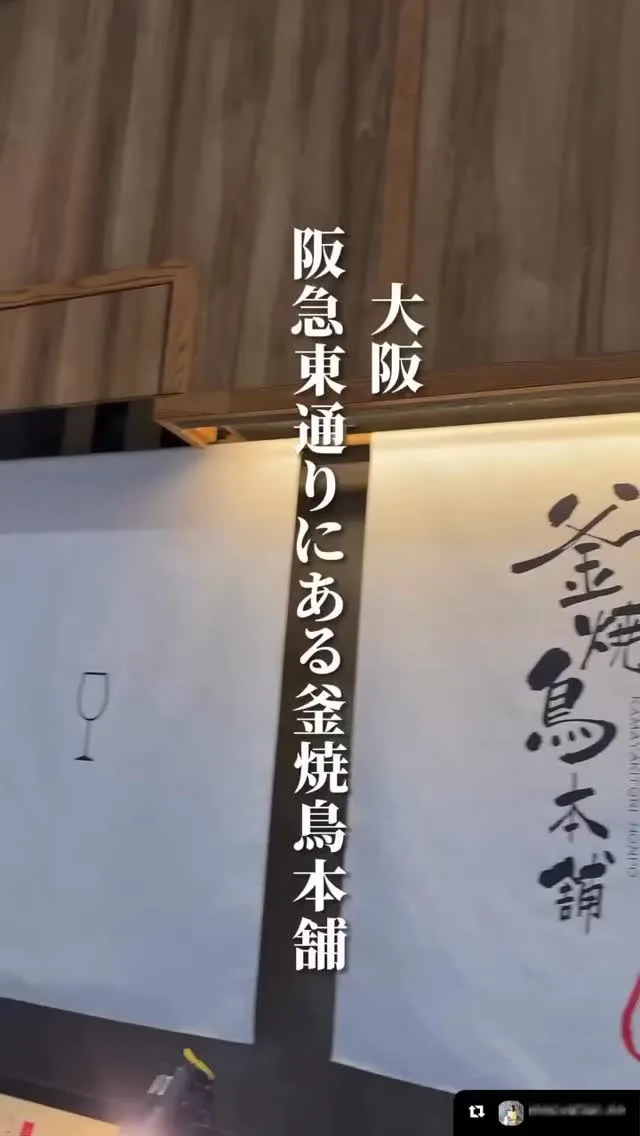 大阪
阪急東通りにある釜焼鳥本舗
釜焼鳥本舗
KAMAYAKITORI HONPO